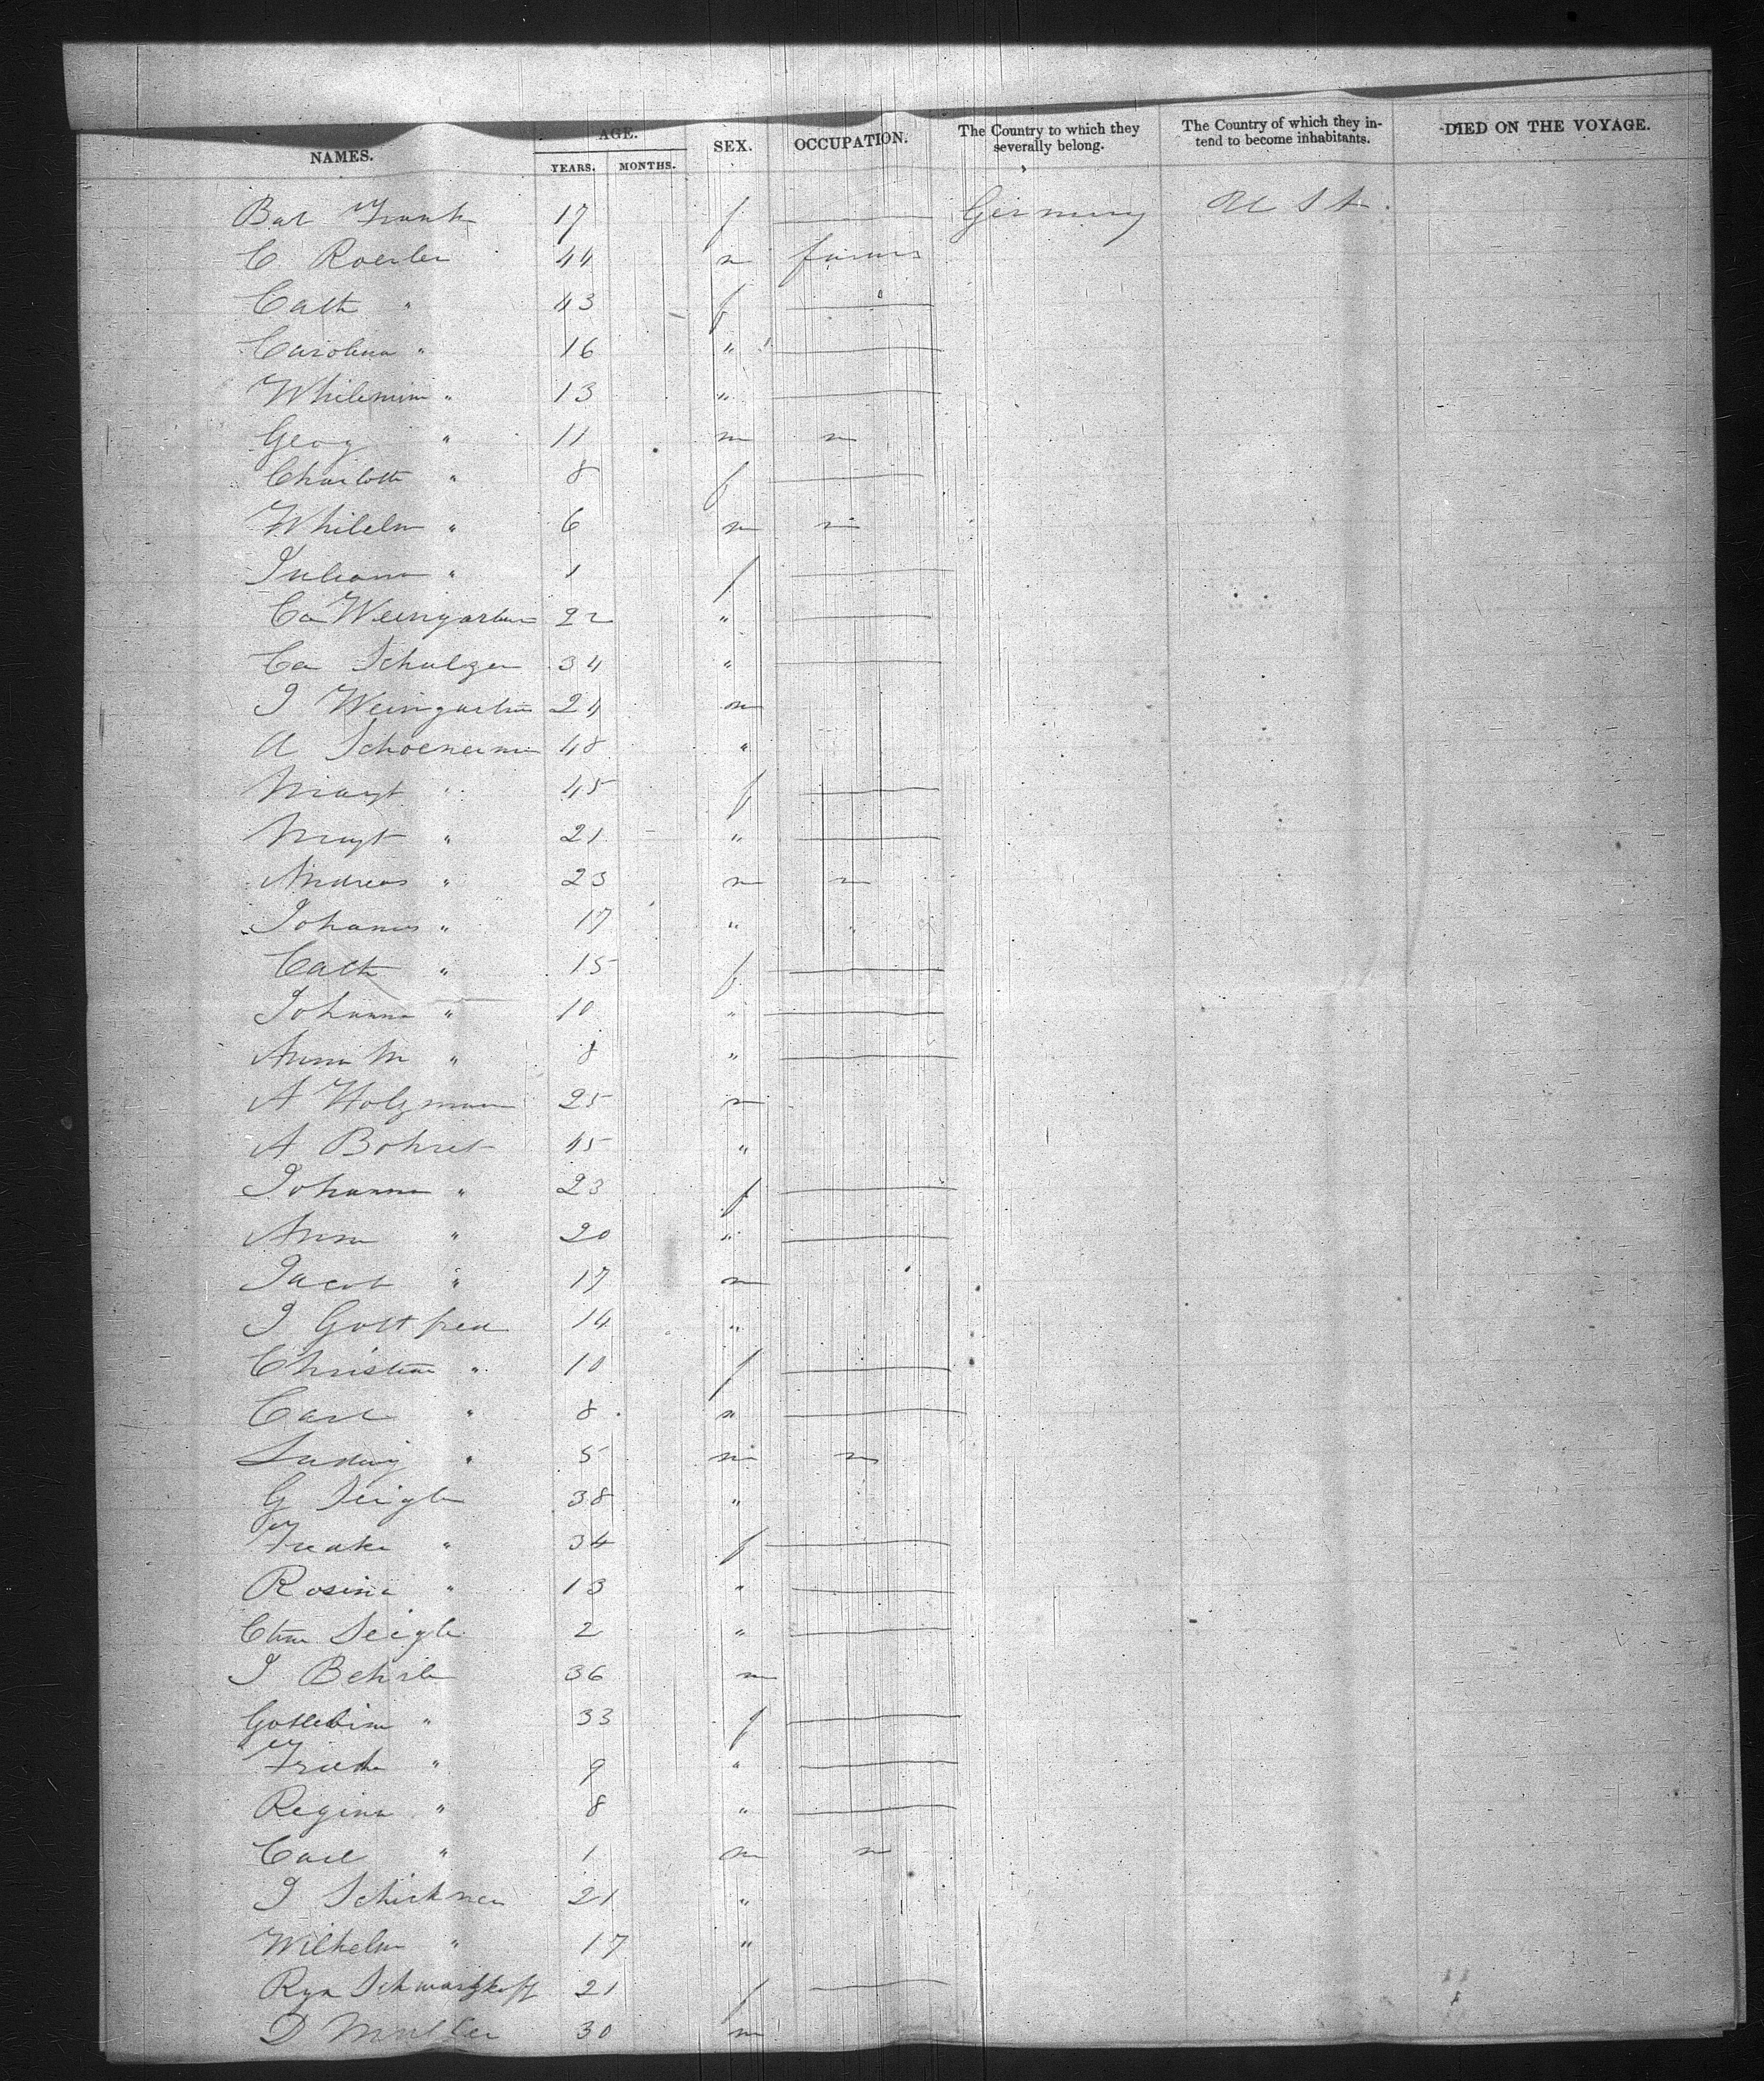 NAMES. AGE. YEARS. MONTHS. SEX. OCCUPATION. The Country to which they severally belong. The Country of which they intend to become inhabitants. DIED ON THE VOYAGE.
Bar Frank 17 f — Germany U S A.
C Roesler 44 m farmer
Cath " 43 f —
Carolina " 16 " —
Whilemin " 13 " —
Georg " 11 m
Charlotte " 8 f —
Whilelm " 6 m
Juliana " 1 f —
Ca Weingarten 22 " —
Ca Schulzen 34 " —
J Weingarten 24 m
A 48 "
Margt " 45 f —
Margt " 21 " —
Andreas " 23 m
Johannes " 17 "
Cath " 15 f —
Johanna " 10 " —
Anna M " 8 " —
A Holzmann 25 m
A Bohret 45 "
Johanna " 23 f —
Anna " 20 " —
Jacob " 17 m
J Gottfried 14 "
Christine " 10 f —
Carl " 8 m —
Ludwig " 5 m
G Seigle 38 "
" 34 f —
Rosina " 13 " —
Seigle 2 " —
J 36 m
Gottlebina " 33 f —
" 9 " —
Regina " 8 " —
Carl " 1 m
J 21 "
Wilhelm " 17 "
Schwarzkopf 21 f —
D Muller 30 m